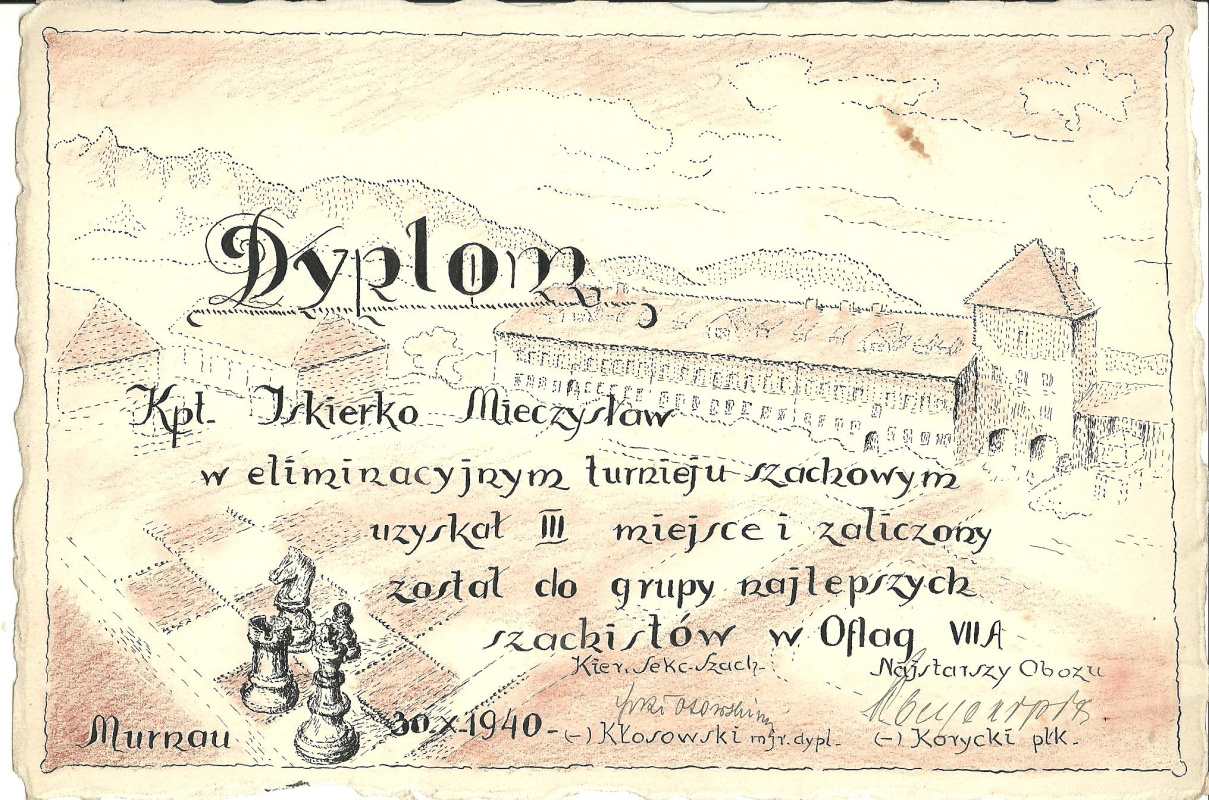 Dyplom
Kpt. Iskierko Mieczysław
w eliminacyjnym turnieju szachowym
uzyskał III miejsce i zaliczony
został do grupy najlepszych
szachistów w Oflag VII A
Kier. Sekc. Szach.
Najstarszy Obozu
Murnau 30.X.1940 -
(-) Kłosowski mjr. dypl.
(-) Korycki płk.